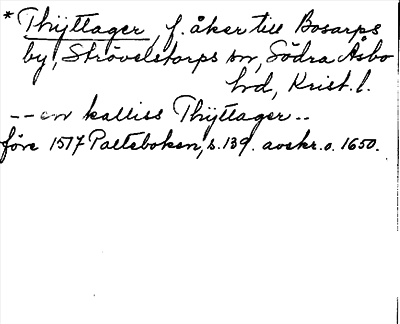 * Thÿttager, f. åker till Bosarps
by, Strövelstorps sn, Södra Åsbo
hd, Krist. l.
-- en kalliss Thÿttager --
före 1517 Palteboken, s. 139. avskr. o. 1650.